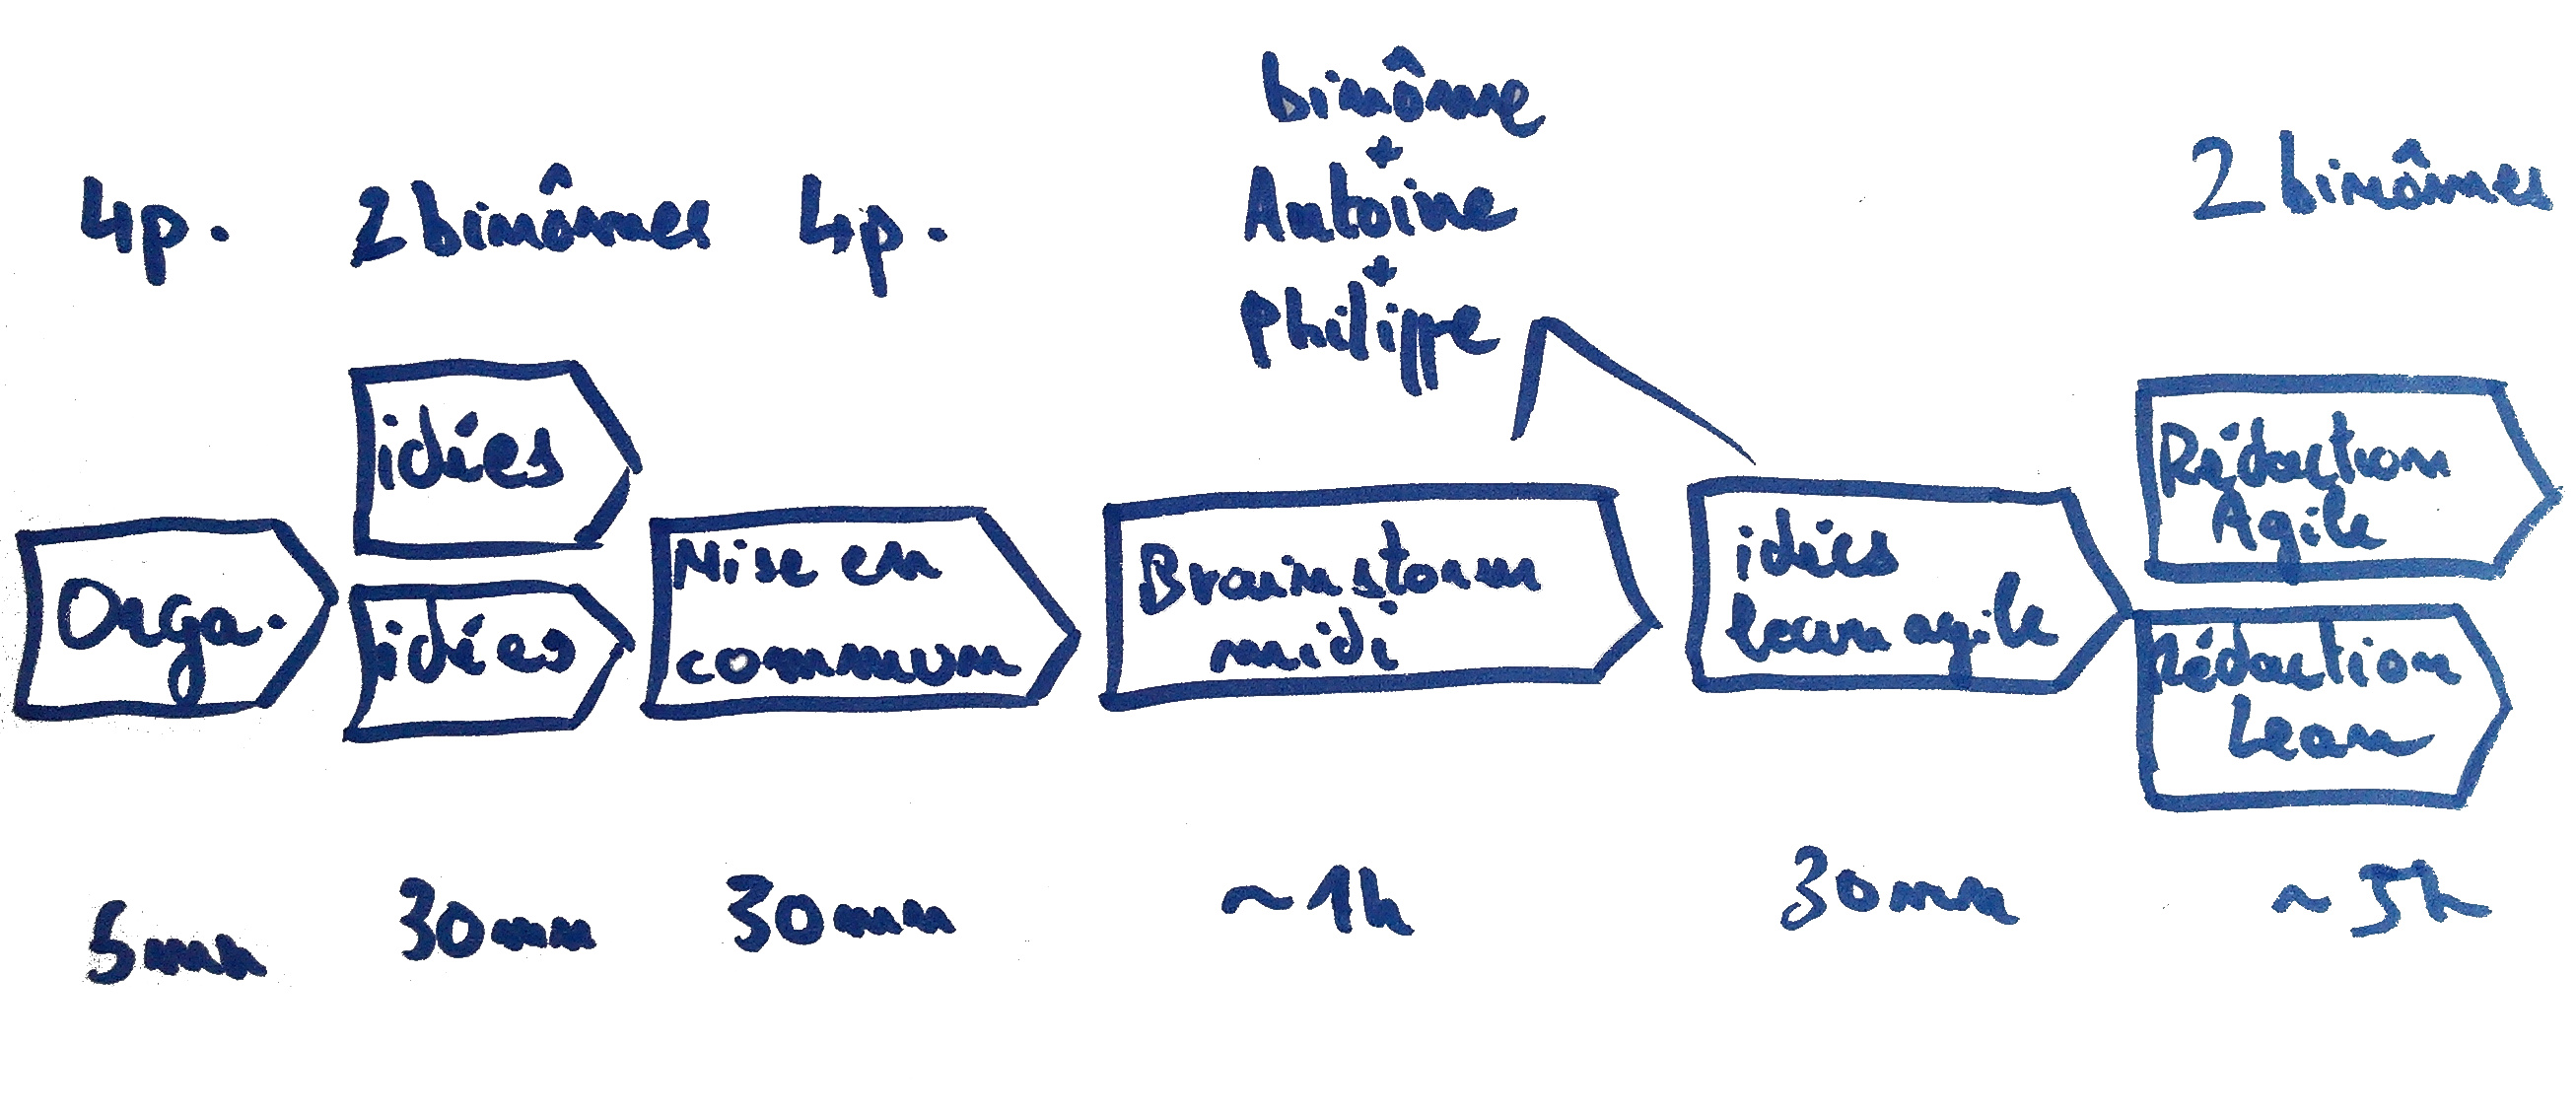 4p.
2 binômes
4p.
binôme
+
Antoine
+
Philippe
2 binômes
Orga.
idées
idées
Mise en
commun
Brainstorm
midi
idées
lean agile
Rédaction
Agile
Rédaction
Lean
5mn
30mn
30mn
~1h
30mn
~5h